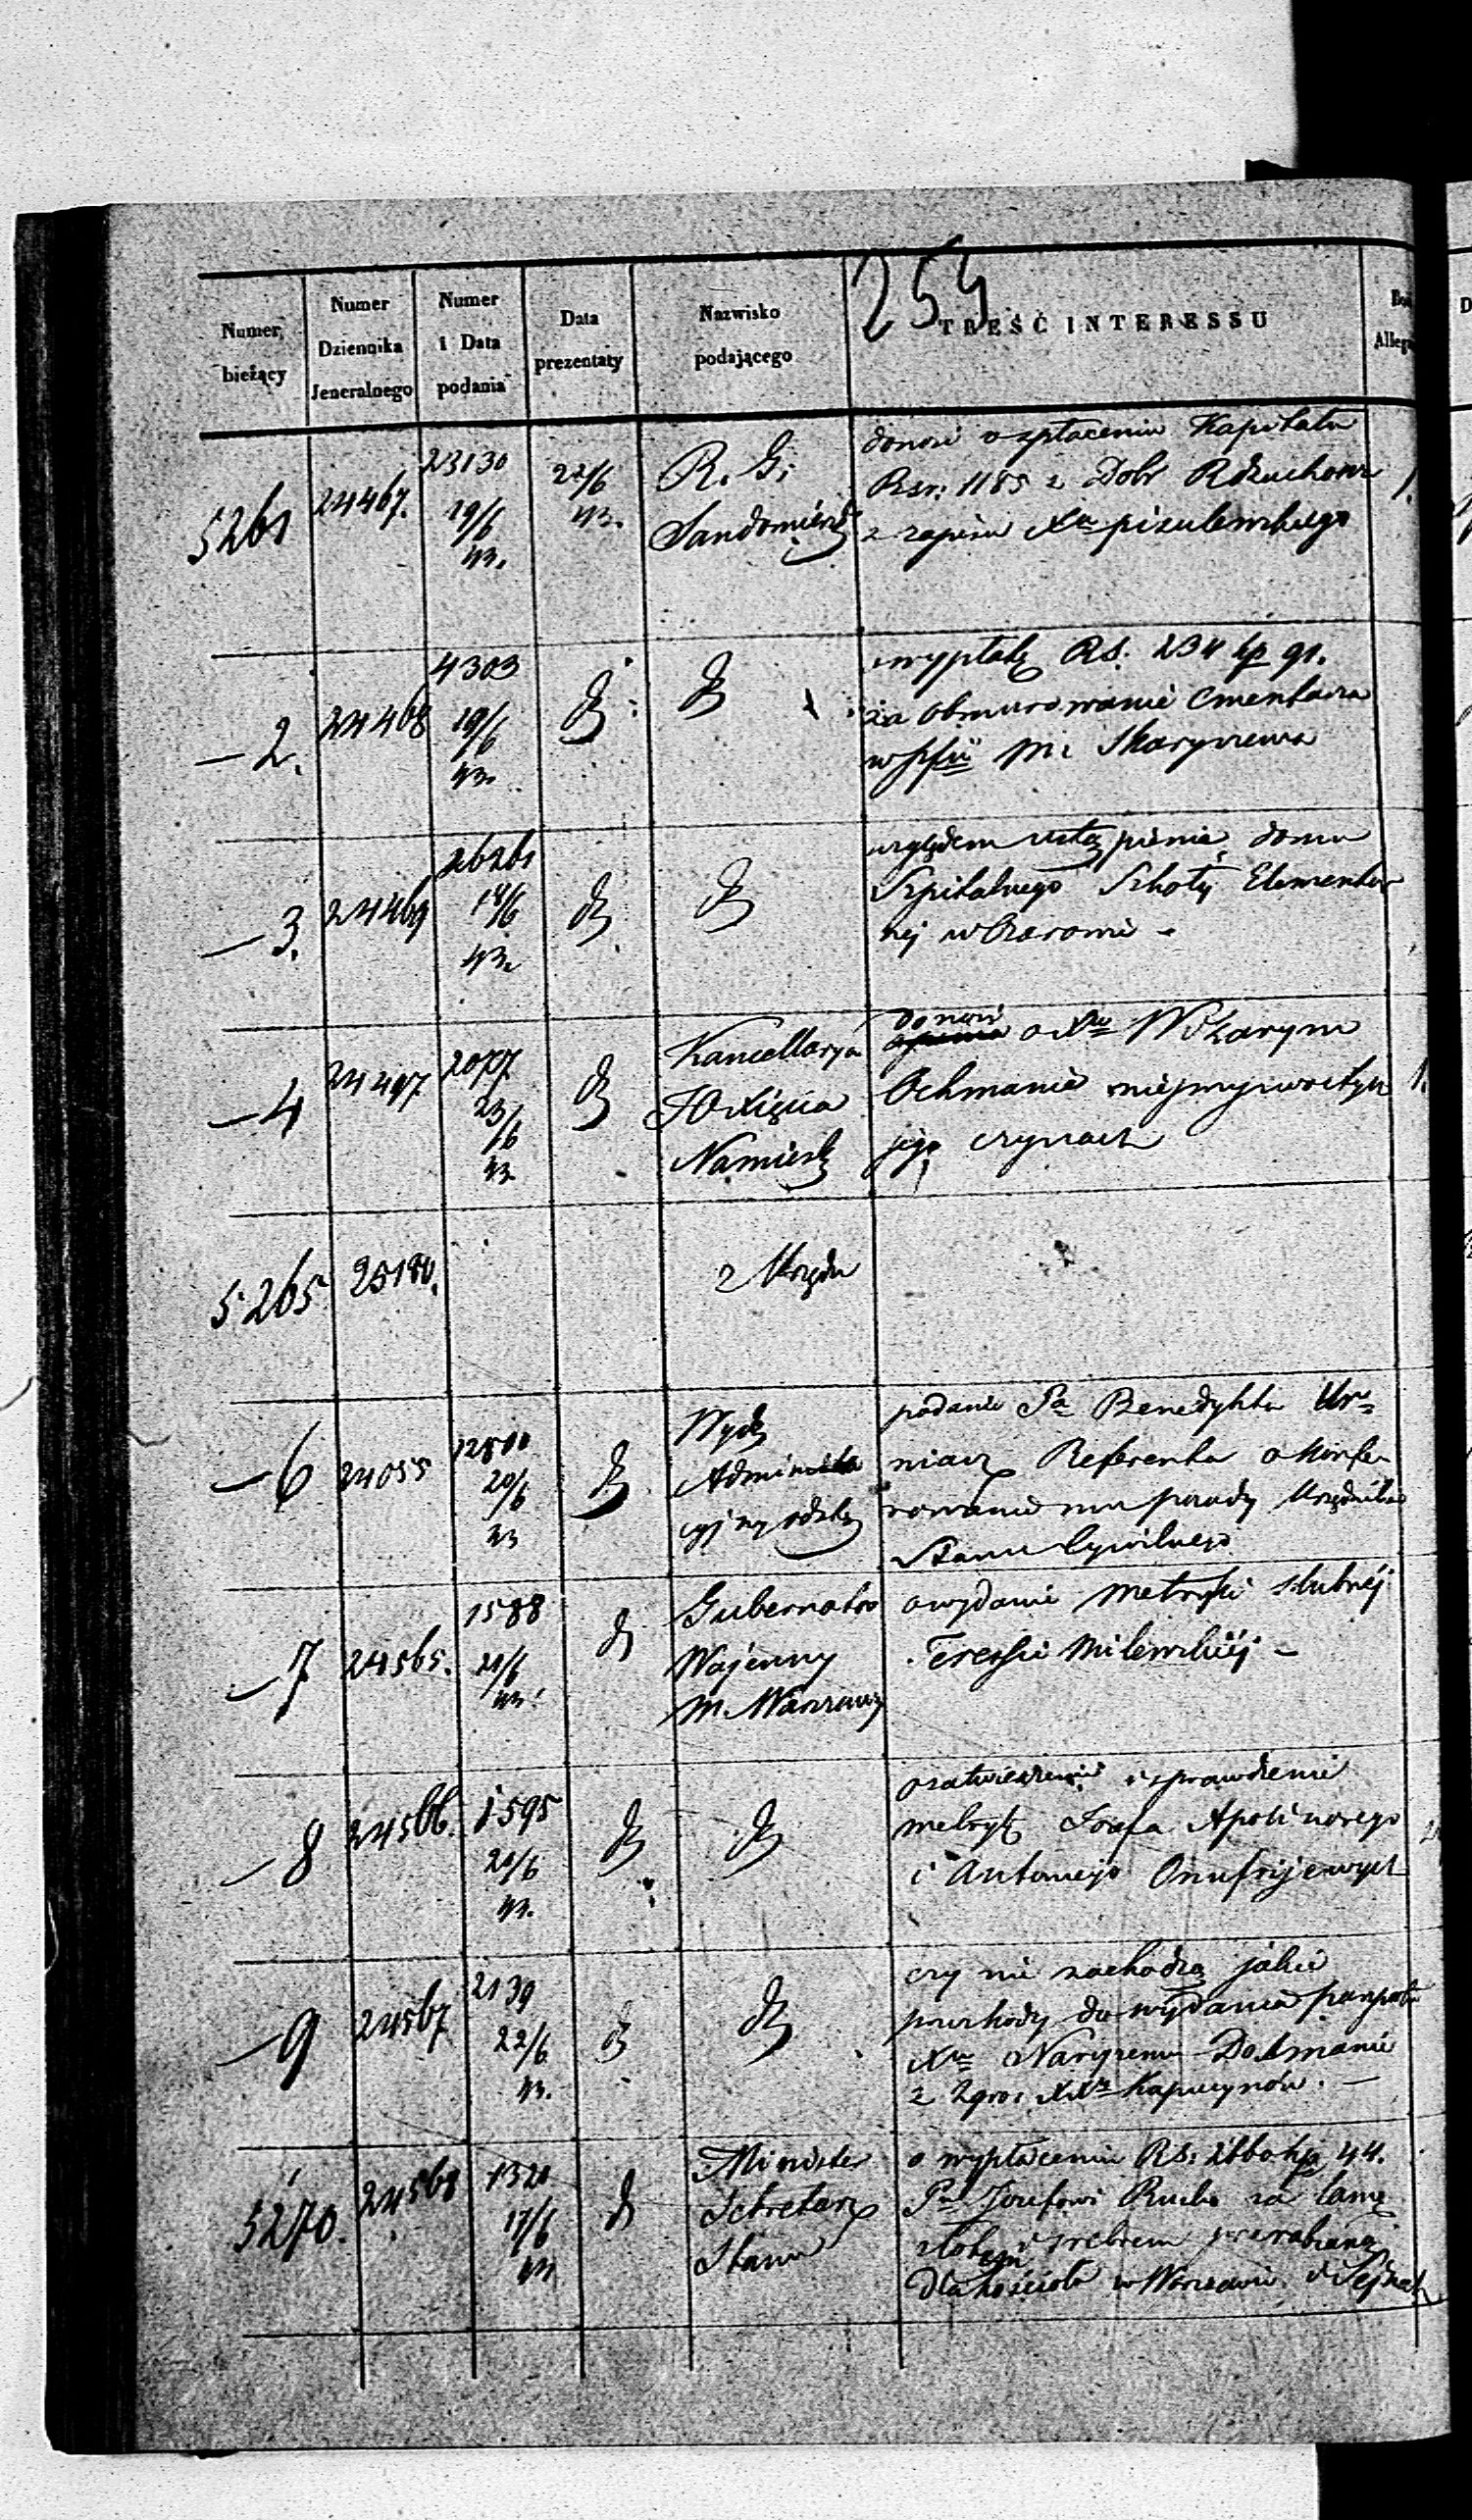 254
Numer bieżący
Numer Dziennika Jeneralnego
Numer i Data podania
Data prezentaty
Nazwisko podającego
TREŚĆ INTERESSU
5261
24467.
23130
19/6
43.
22/6
43.
R. G.
Sandomiersk
donosi o spłaceniu Kapitału
Rsr: 1185 z Dobr Rożuchow
z zapisu Xa
1.
—2.
24468
4303
19/6
43.
wypłatę Rs. 234 kp 91.
za obmurowanie Cmentarza
w m. Skaryszewa
—3.
24469
26261
43.
względem ustąpienia domu
Szpitalnego Szkoły Elementar
nej w
—4
24497
2077
23/6
43
Kancellarya
JO Xięcia
Namiest
donosi o Xu
Ochmanie
jego czynach
1.
5265
25180.
z Urzędu
—6
24055
12500
20/6
43
Wydz
Administra
podanie Pa Benedykta Ur=
niarz Referenta o
rowanie mu posady Urzędnika
Stanu Cywilnego
—7
24565.
1588
21/6
43.
Gubernator
Wojenny
m. Warszawy
o wydanie metryki ślubnéj
Teressie Milewskiéj —
—8
24566.
1595
20/6
43.
i sprawdzenie
metryk Józefa Apolinarego
i Antoniego Onufryjewych
—9
24567
2139
22/6
43.
czy nie zachodzą jakie
przeszkody do wydania paszportu
Xu
z Zgro: XXw Kapucynów. —
5270.
24568
1320
17/6
43
Minister
Sekretarz
Stanu
o wypłacenie Rs: 2660 kp 44.
Pu Józefowi za lamę
złotem i srebrem przerabianą
dla kościoła w Warszawie